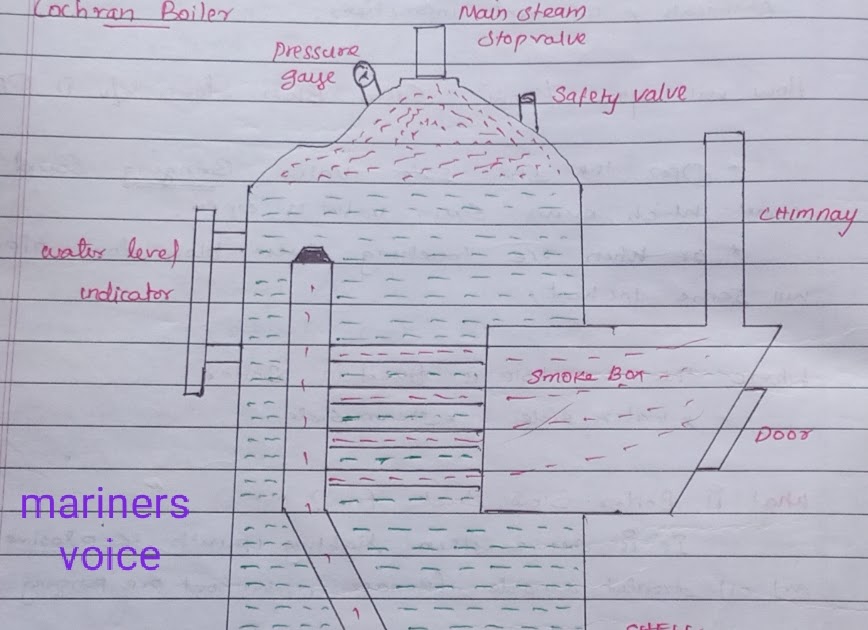 Cochran Boiler
Main steam
stop valve
pressure
gauge
Safety valve
CHIMNAY
water level
indicator
Smoke Box
DOOR
mariners
voice